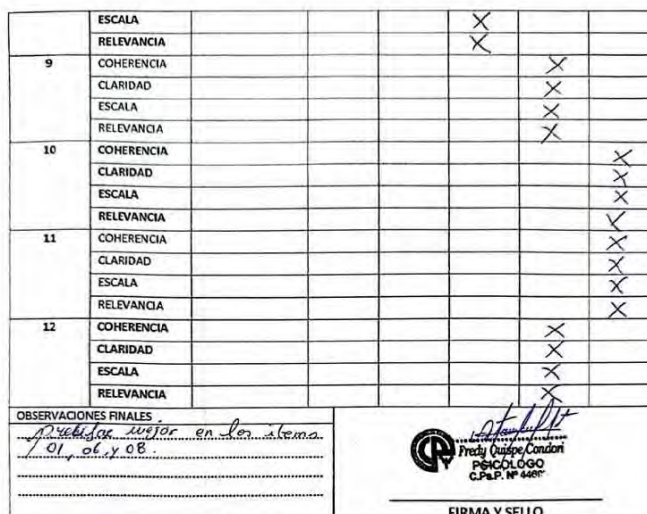 ESCALA X
RELEVANCIA X
9 COHERENCIA X
CLARIDAD X
ESCALA X
RELEVANCIA X
10 COHERENCIA X
CLARIDAD X
ESCALA X
RELEVANCIA X
11 COHERENCIA X
CLARIDAD X
ESCALA X
RELEVANCIA X
12 COHERENCIA X
CLARIDAD X
ESCALA X
RELEVANCIA X
OBSERVACIONES FINALES
mejor en los items
01, 06, y 08.
Fredy Quispe Condori
PSICÓLOGO
C.Ps.P. Nº
FIRMA Y SELLO